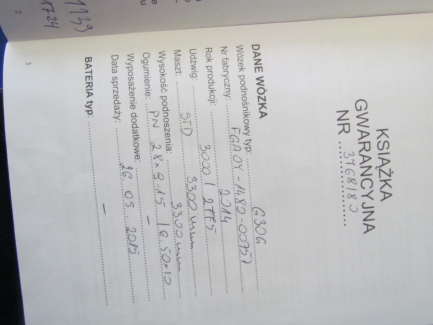 KSIĄŻKA
GWARANCYJNA
NR 3768180
DANE WÓZKA
Wózek podnośnikowy typ: G30G
Nr fabryczny: FGA0Y-1482-00757
Rok produkcji: 2014
Udźwig: 3000 /
Maszt: STD 3300 mm
Wysokość podnoszenia: 3300 mm
Ogumienie: PN 28x9-15 / 6.50x10
Wyposażenie dodatkowe: –
Data sprzedaży: 26.05.2015
BATERIA typ: –
3